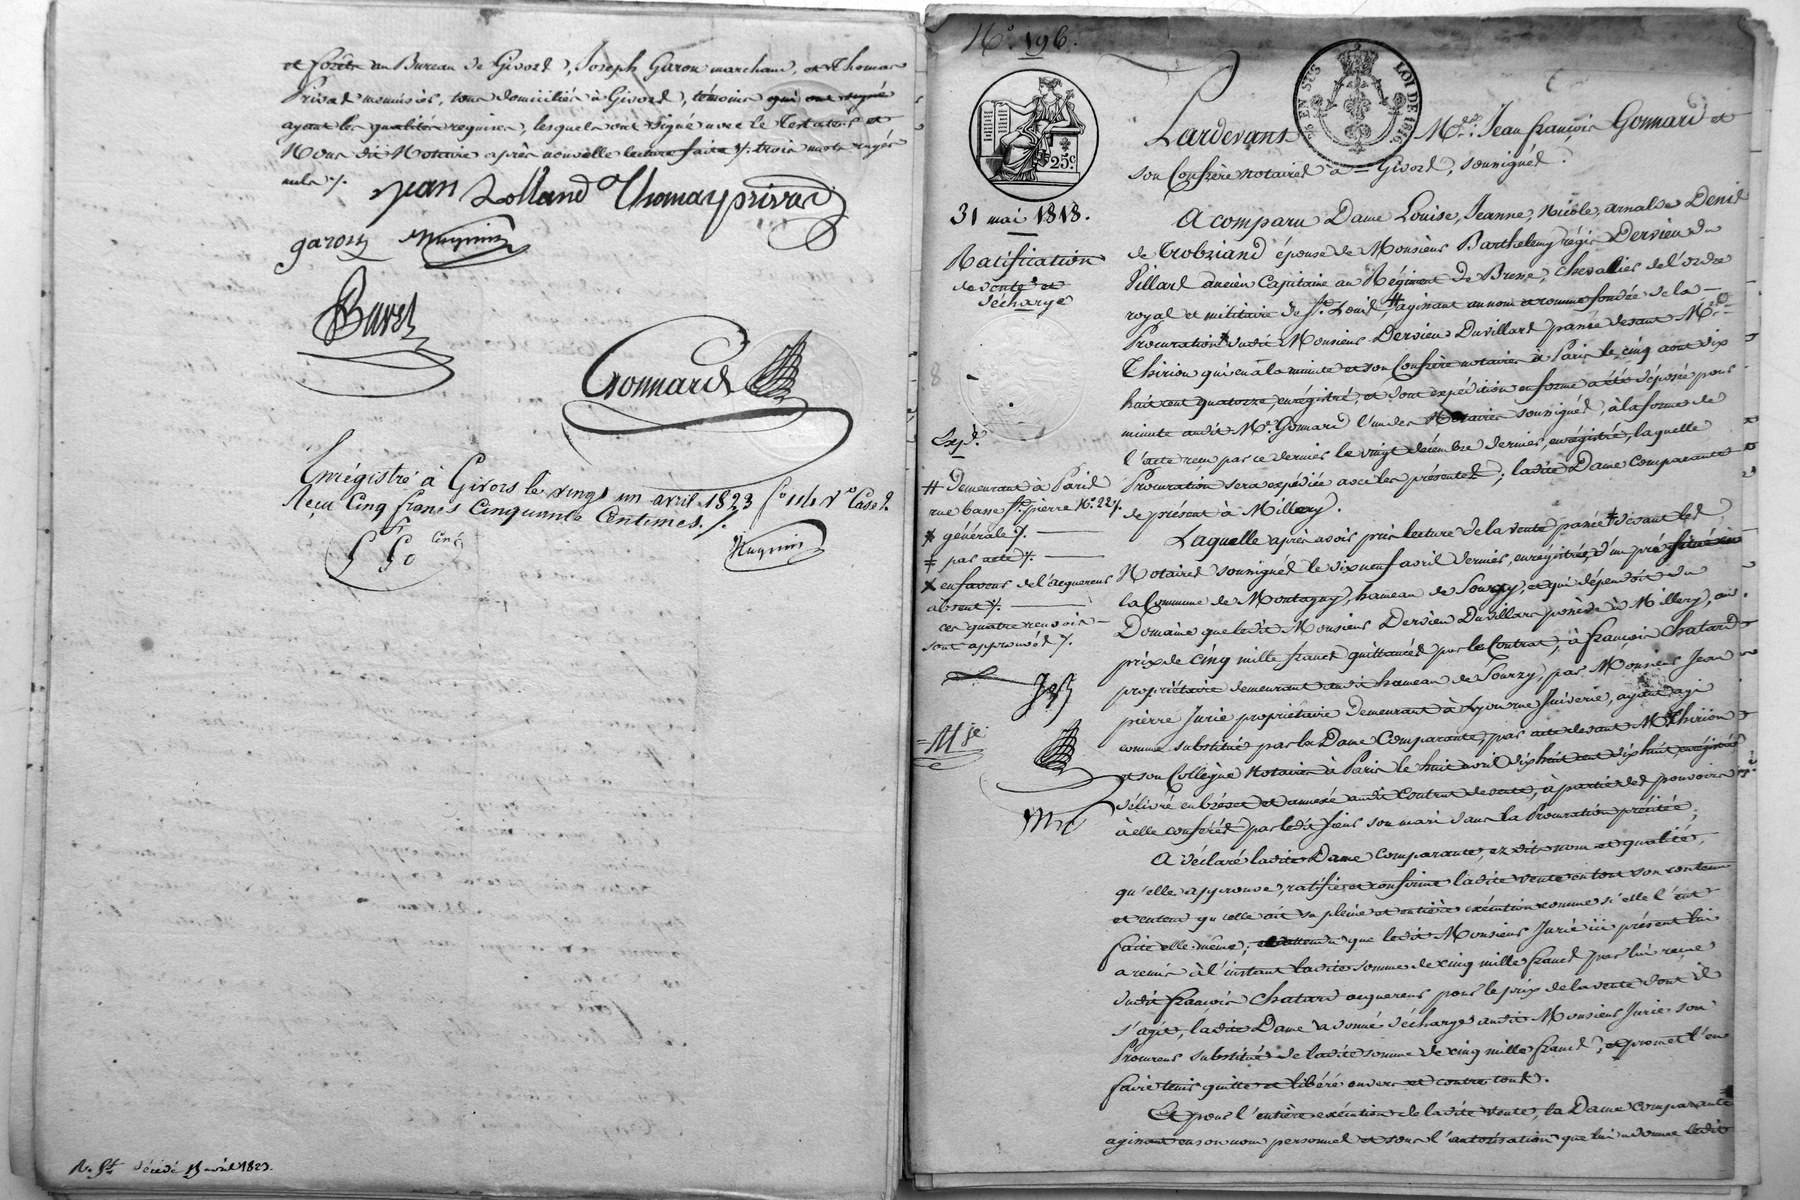 et forêts au Bureau de Givors, Joseph Garon marchand, et Thomas
Privat menuisier, tous domiciliés à Givors, témoins qui ont signé
ayant les qualités requises, lesquels ont signé avec le Testateur et
Nous dit Notaire après nouvelle lecture faite ./. trois mots rayés
nuls ./.
jean Rolland Thomas privat
garon
Buret
Gonnard
Enregistré à Givors le vingt un avril 1823 fo 114 Vo Case 1.
Reçu Cinq francs Cinquante Centimes ./.
5 fr 50 cent
décédé 15 avril 1823.
No. 196.
25 EN SUS LOI DE 1816
25 c
31 mai 1818.
Ratification
de vente et
décharge
Expd.
# Demeurant à Paris
rue basse St. pierre No. 22 ./.
* générale ./.
‡ par acte ./.
x en faveur de l'acquereur
absent ./.
ces quatre renvois
sont approuvés ./.
Pardevant Mes. Jean françois Gonnard et
son Confrère notaires à Givors, soussignés.
A comparu Dame Louise, Jeanne, Nicole, arnalde Denis
de Trobriand épouse de Monsieur Barthelemy régis Dervieu du
Villard ancien Capitaine au Régiment de Bresse, chevallier de l'ordre
royal et militaire de St. Louis, # agissant au nom et comme fondée de la
Procuration * dudit Monsieur Dervieu Duvillard passée devant Me.
Thirion qui en a la minute et son Confrère notaires à Paris le cinq aout dix
huit cent quatorze, enregistré, et dont expédition en forme a été déposée pour
minute audit Me. Gonnard l'un des Notaires soussignés, à la forme de
l'acte reçu par ce dernier le vingt décembre dernier, enregistré, laquelle
Procuration sera expédiée avec les présentes; ladite Dame comparante
de présent à Millery.
Laquelle après avoir pris lecture de la vente passée ‡ devant les
Notaires soussignés le dix neuf avril dernier, enregistrée, d'un pré situé en
la Commune de Montagny, hameau de Sourzy, et qui dépendoit du
Domaine que ledit Monsieur Dervieu Duvillard possède à Millery, au
prix de cinq mille francs quittancés par le Contrat, à françois Chatard
propriétaire demeurant audit hameau de Sourzy, par Monsieur Jean
pierre Jurie propriétaire demeurant à Lyon rue Juiverie, ayant agi
comme substitué par la Dame Comparante, par acte devant Me Thirion
et son Collègue Notaires à Paris le huit avril dix huit cent dix huit, enregistré
délivré en brévet et annexé audit Contrat de vente, à partie des pouvoirs
à elle conférés par ledit sieur son mari dans la Procuration précitée;
A déclaré ladite Dame comparante, ez dits nom et qualité,
qu'elle approuve, ratifie et confirme ladite vente en tout son contenu
et entend qu'elle ait sa pleine et entière exécution comme si elle l'eut
faite elle-même; et attendu que ledit Monsieur Jurie ici présent lui
a remis à l'instant ladite somme de cinq mille francs par lui reçue
dudit françois Chatard acquereur pour le prix de la vente dont il
s'agit, ladite Dame a donné décharge audit Monsieur Jurie son
Procureur substitué de ladite somme de cinq mille francs, et promet l'en
faire tenir quitte et libéré envers et contre tous.
Et pour l'entière exécution de ladite vente, la Dame comparante
agissant en son nom personnel et sous l'autorisation que lui a donné ledit